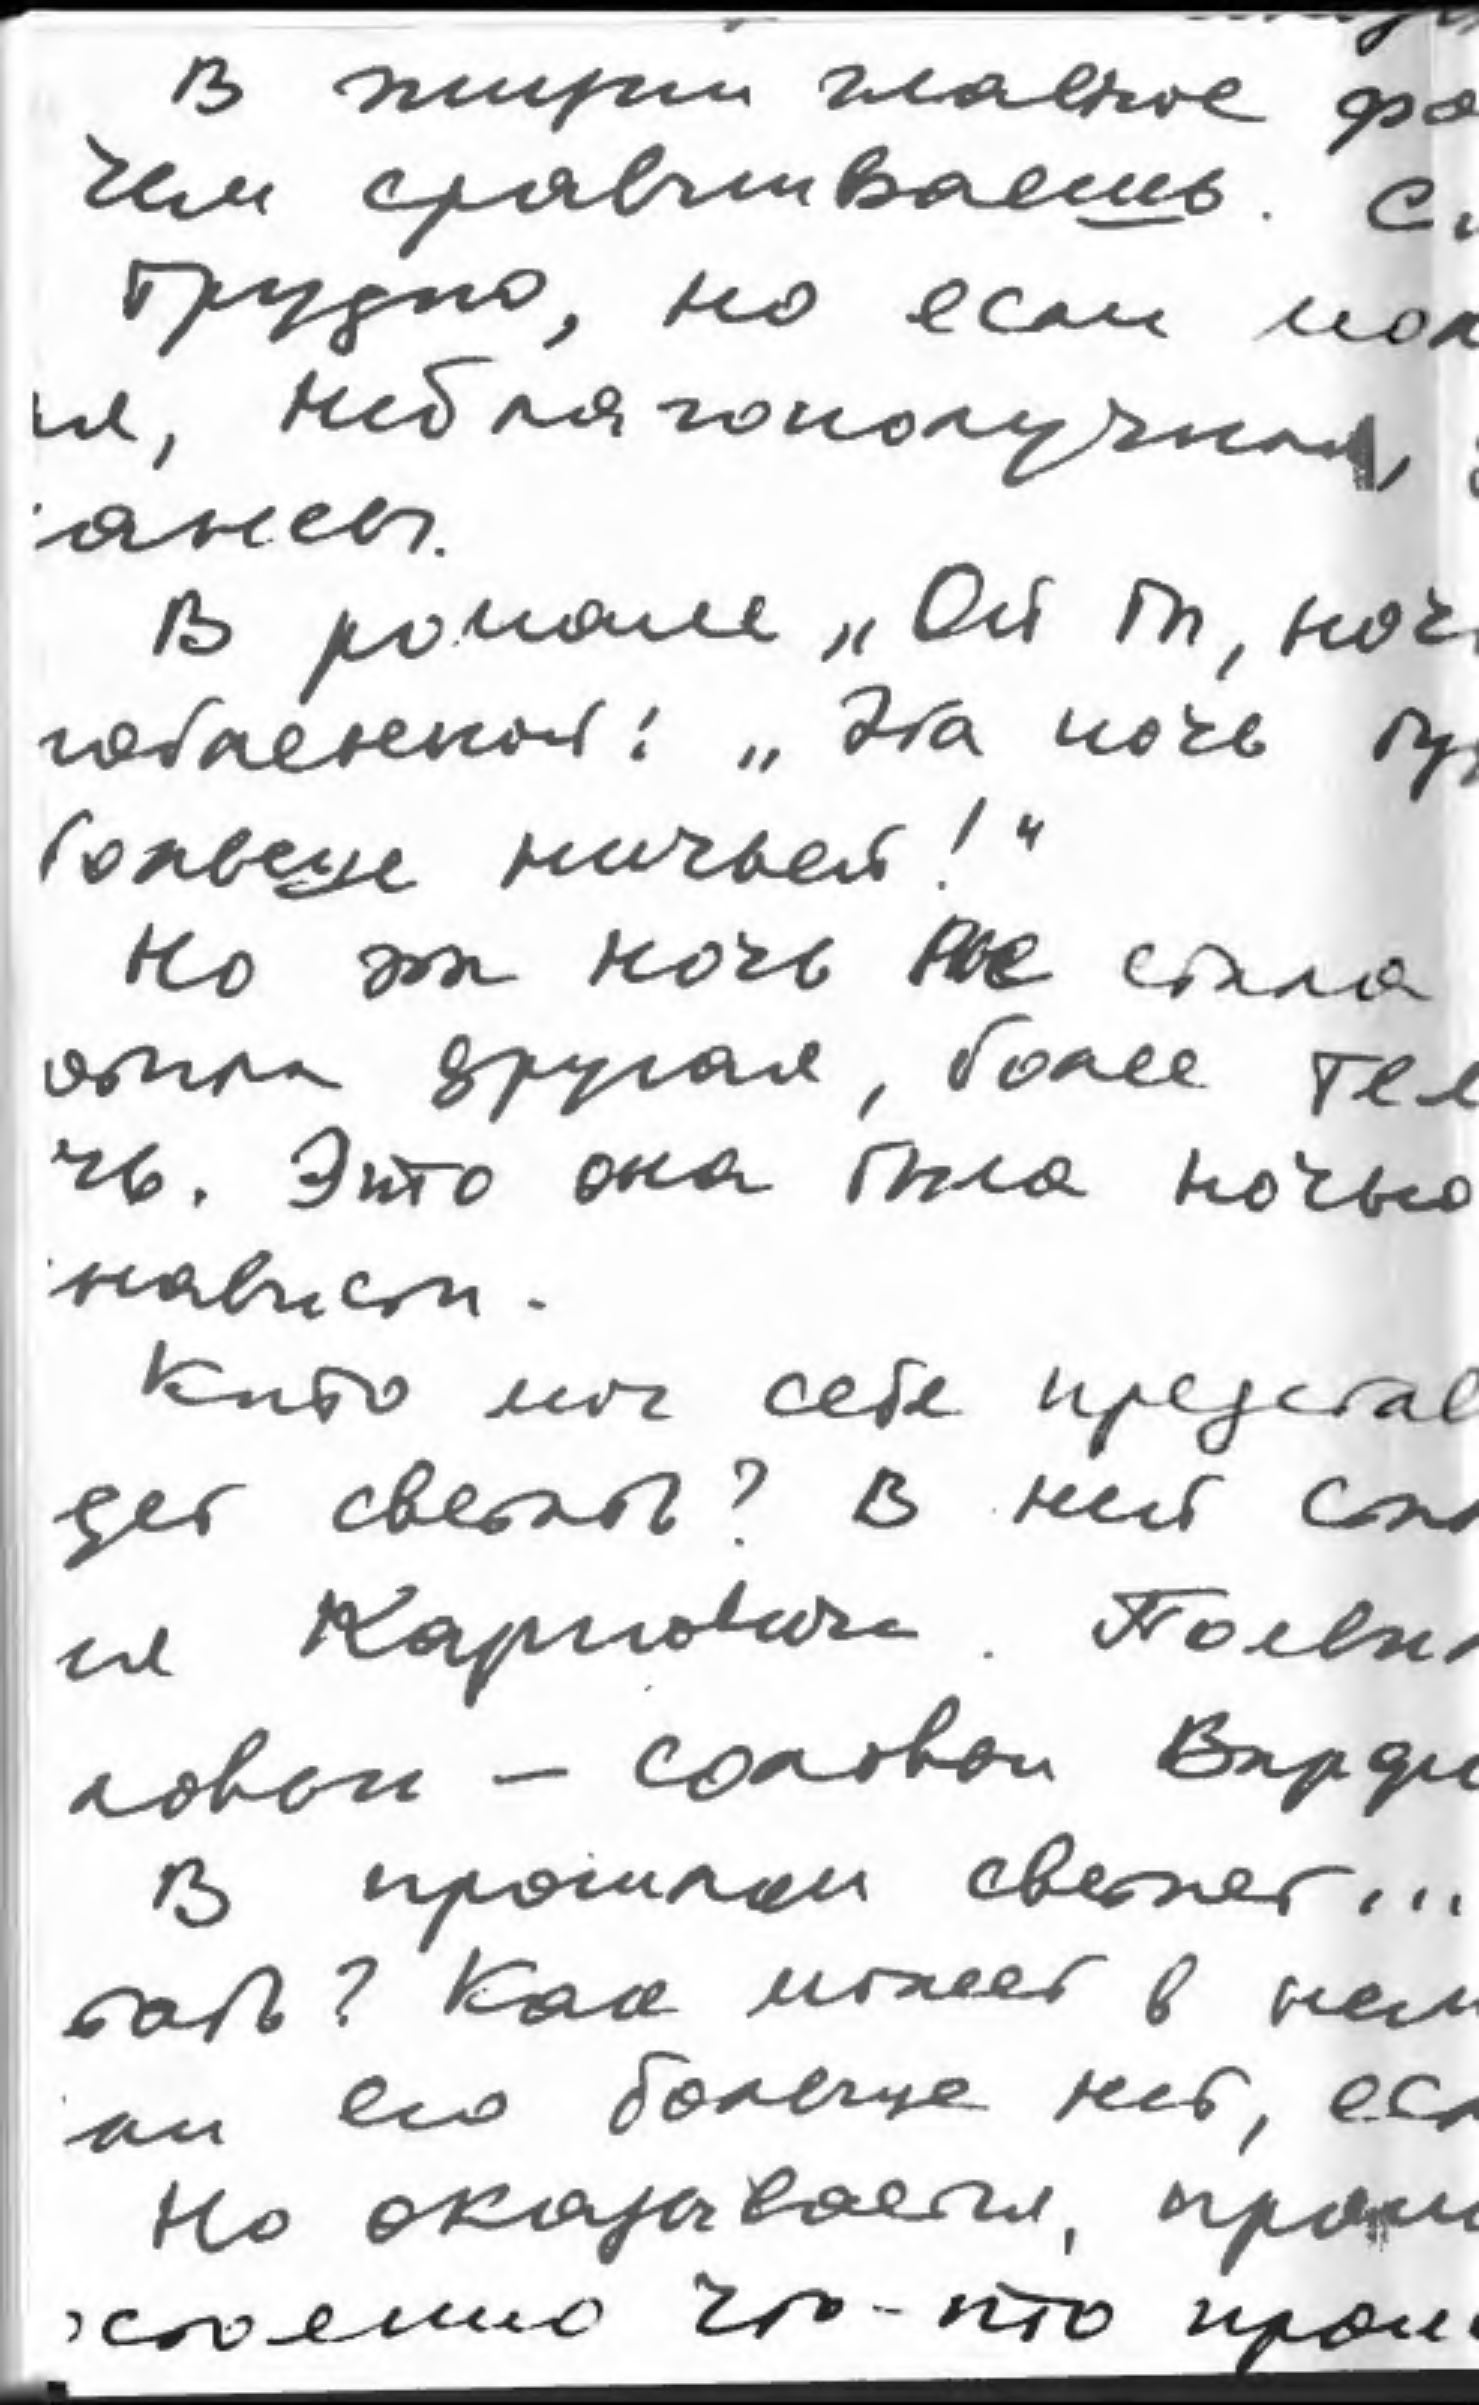 В жизни главное фо
чем сравниваешь. С
трудно, но если пол
ия, неблагополучная,
ансы.
В романе „Ой ты, ноч
габаевской: „Эта ночь бу
больше ничьей!"
Но эта ночь не стала
была другая, более тем
чь. Это она была ночью
нависти.
Кто мог себе представ
дет светать? В ней ста
ия Карповича. Появил
ловьи – соловьи Варфо
В прошлом светает...
тать? Как может в нем
ли его больше нет, есл
Но оказывается, прош
остоянно что-то прои